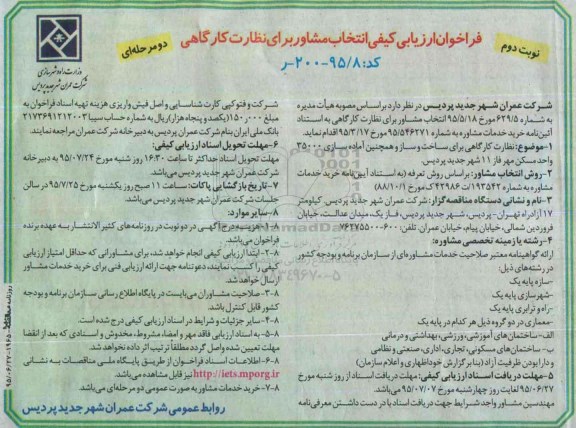 نوبت دوم
فراخوان ارزیابی کیفی انتخاب مشاور برای نظارت کارگاهی
دو مرحله‌ای
کد: ۹۵/۸-۲۰۰-ر
وزارت راه و شهرسازی
شرکت عمران شهر جدید پردیس
شرکت عمران شهر جدید پردیس در نظر دارد براساس مصوبه هیأت مدیره
به شماره ۶۲۹/۵ مورخ ۹۵/۵/۱۸ انتخاب مشاور برای نظارت کارگاهی به استناد
آئین‌نامه خرید خدمات مشاوره به شماره ۹۵/۵۴۶۲۷۱ مورخ ۹۵/۳/۱۷ اقدام نماید.
۱-موضوع: نظارت کارگاهی برای ساخت و ساز و همچنین آماده سازی ۳۵۰۰۰
واحد مسکن مهر فاز ۱۱ شهر جدید پردیس.
۲-روش انتخاب مشاور: براساس روش تعرفه (به استناد آیین‌نامه خرید خدمات
مشاوره به شماره ۱۹۳۵۴۲/ت ۴۲۹۸۶ک مورخ ۸۸/۱۰/۱)
۳-نام و نشانی دستگاه مناقصه گزار: شرکت عمران شهر جدید پردیس. کیلومتر
۱۷ آزادراه تهران-پردیس، شهر جدید پردیس، فاز یک، میدان عدالت، خیابان
فروردین شمالی، خیابان پیام، خیابان عمران. تلفن: ۶۰۰-۷۶۲۷۵۵۰۰
۴-رشته یا زمینه تخصصی مشاوره:
ارائه گواهینامه معتبر صلاحیت خدمات مشاوره‌ای از سازمان برنامه و بودجه کشور
در رشته‌های ذیل:
-سازه پایه یک
-شهرسازی پایه یک
-راه و ترابری پایه یک
-معماری در دو گروه ذیل هر کدام در پایه یک
الف-ساختمان‌های آموزشی، ورزشی، بهداشتی و درمانی
ب-ساختمان‌های مسکونی، تجاری، اداری، صنعتی و نظامی
و دارا بودن ظرفیت آزاد (بنابر گزارش خوداظهاری و اعلام سازمان)
۵-مهلت دریافت اسناد ارزیابی کیفی: مهلت دریافت اسناد از روز شنبه مورخ
۹۵/۰۶/۲۷ لغایت روز چهارشنبه مورخ ۹۵/۰۷/۰۷ می‌باشد.
مهندسین مشاور واجد شرایط جهت دریافت اسناد با در دست داشتن معرفی‌نامه
شرکت و فتوکپی کارت شناسایی و اصل فیش واریزی هزینه تهیه اسناد فراخوان به
مبلغ ۱۵۰/۰۰۰ ریال (یکصد و پنجاه هزار) ریال به شماره حساب سیبا ۲۱۷۳۶۹۱۲۱۲۰۰۳
بانک ملی ایران بنام شرکت عمران پردیس به دبیرخانه شرکت عمران مراجعه نمایند.
۶-مهلت تحویل اسناد ارزیابی کیفی:
مهلت تحویل اسناد حداکثر تا ساعت ۱۶:۳۰ روز شنبه مورخ ۹۵/۰۷/۲۴ به دبیرخانه
شرکت عمران شهر جدید پردیس می‌باشد.
۷-تاریخ بازگشایی پاکات: ساعت ۱۱ صبح روز یکشنبه مورخ ۹۵/۷/۲۵ در سالن
جلسات شرکت عمران شهر جدید پردیس می‌باشد.
۸-سایر موارد:
۸-۱-هزینه درج آگهی در دو نوبت در روزنامه‌های کثیر الانتشار به عهده برنده
فراخوان می‌باشد.
۸-۲-ابتدا ارزیابی کیفی انجام خواهد شد، برای مشاورانی که حداقل امتیاز ارزیابی
کیفی را کسب نمایند، دعوتنامه جهت ارائه ارزیابی فنی برای خرید خدمات مشاور
ارسال خواهد شد.
۸-۳-صلاحیت مشاوران می‌بایست در پایگاه اطلاع رسانی سازمان برنامه و بودجه
کشور قابل کنترل باشد.
۸-۴-سایر جزئیات و شرایط در اسناد ارزیابی کیفی درج شده است.
۸-۵-به اسناد ارزیابی فاقد مهر و امضا، مشروط، مخدوش و اسنادی که بعد از انقضا
مهلت تعیین شده واصل گردد مطلقاً ترتیب اثر داده نخواهد شد.
۸-۶-اطلاعات اسناد فراخوان از طریق پایگاه ملی مناقصات به نشانی
http://iets.mporg.ir نیز قابل مشاهده می‌باشد.
۸-۷-خرید خدمات مشاور به صورت عمومی دو مرحله‌ای می‌باشد.
روابط عمومی شرکت عمران شهر جدید پردیس